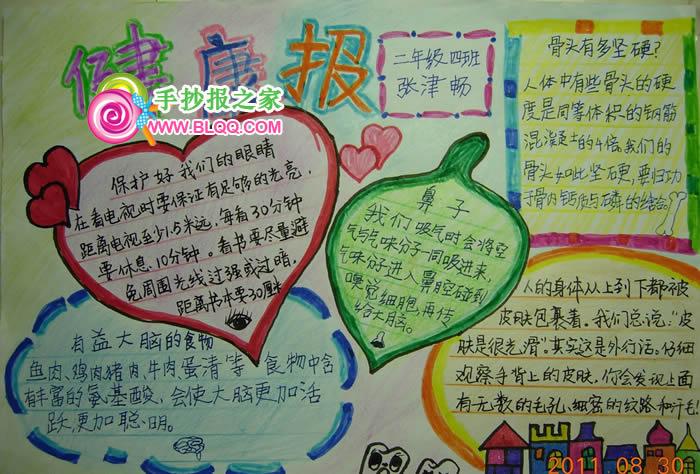 健康报
手抄报之家
WWW.BLQQ.COM
二年级四班
张津畅
骨头有多坚硬？
人体中有些骨头的硬
度是同等体积的钢筋
混凝土的4倍,我们的
骨头如此坚硬,要归功
于骨内钙质与磷的结合
保护好我们的眼睛
在看电视时要保证有足够的光亮,
距离电视至少1.5米远,每看30分钟
要休息10分钟。看书要尽量避
免周围光线过强或过暗,
距离书本要30厘米
鼻子
我们吸气时会将空
气与气味分子一同吸进来,
气味分子进入鼻腔碰到
嗅觉细胞,再传
给大脑。
有益大脑的食物
鱼肉、鸡肉猪肉、牛肉、蛋清等食物中含
有丰富的氨基酸,会使大脑更加活
跃,更加聪明。
人的身体从上到下都被
皮肤包裹着。我们总说:“皮
肤是很光滑”。其实这是外行话。仔细
观察手背上的皮肤,你会发现上面
有无数的毛孔、细密的纹路和汗毛!
2011 08 30